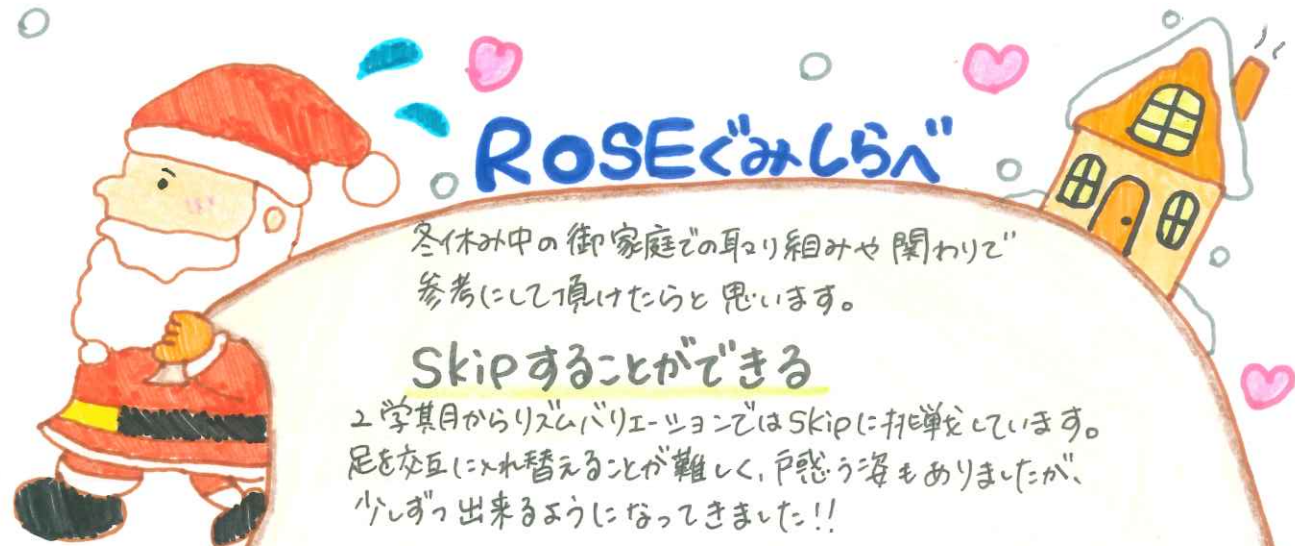 ROSEぐみしらべ
冬休み中の御家庭での取り組みや関わりで
参考にして頂けたらと思います。
Skipすることができる
2学期目からリズムバリエーションではSkipに挑戦しています。
足を交互に入れ替えることが難しく、戸惑う姿もありましたが、
少しずつ出来るようになってきました!!